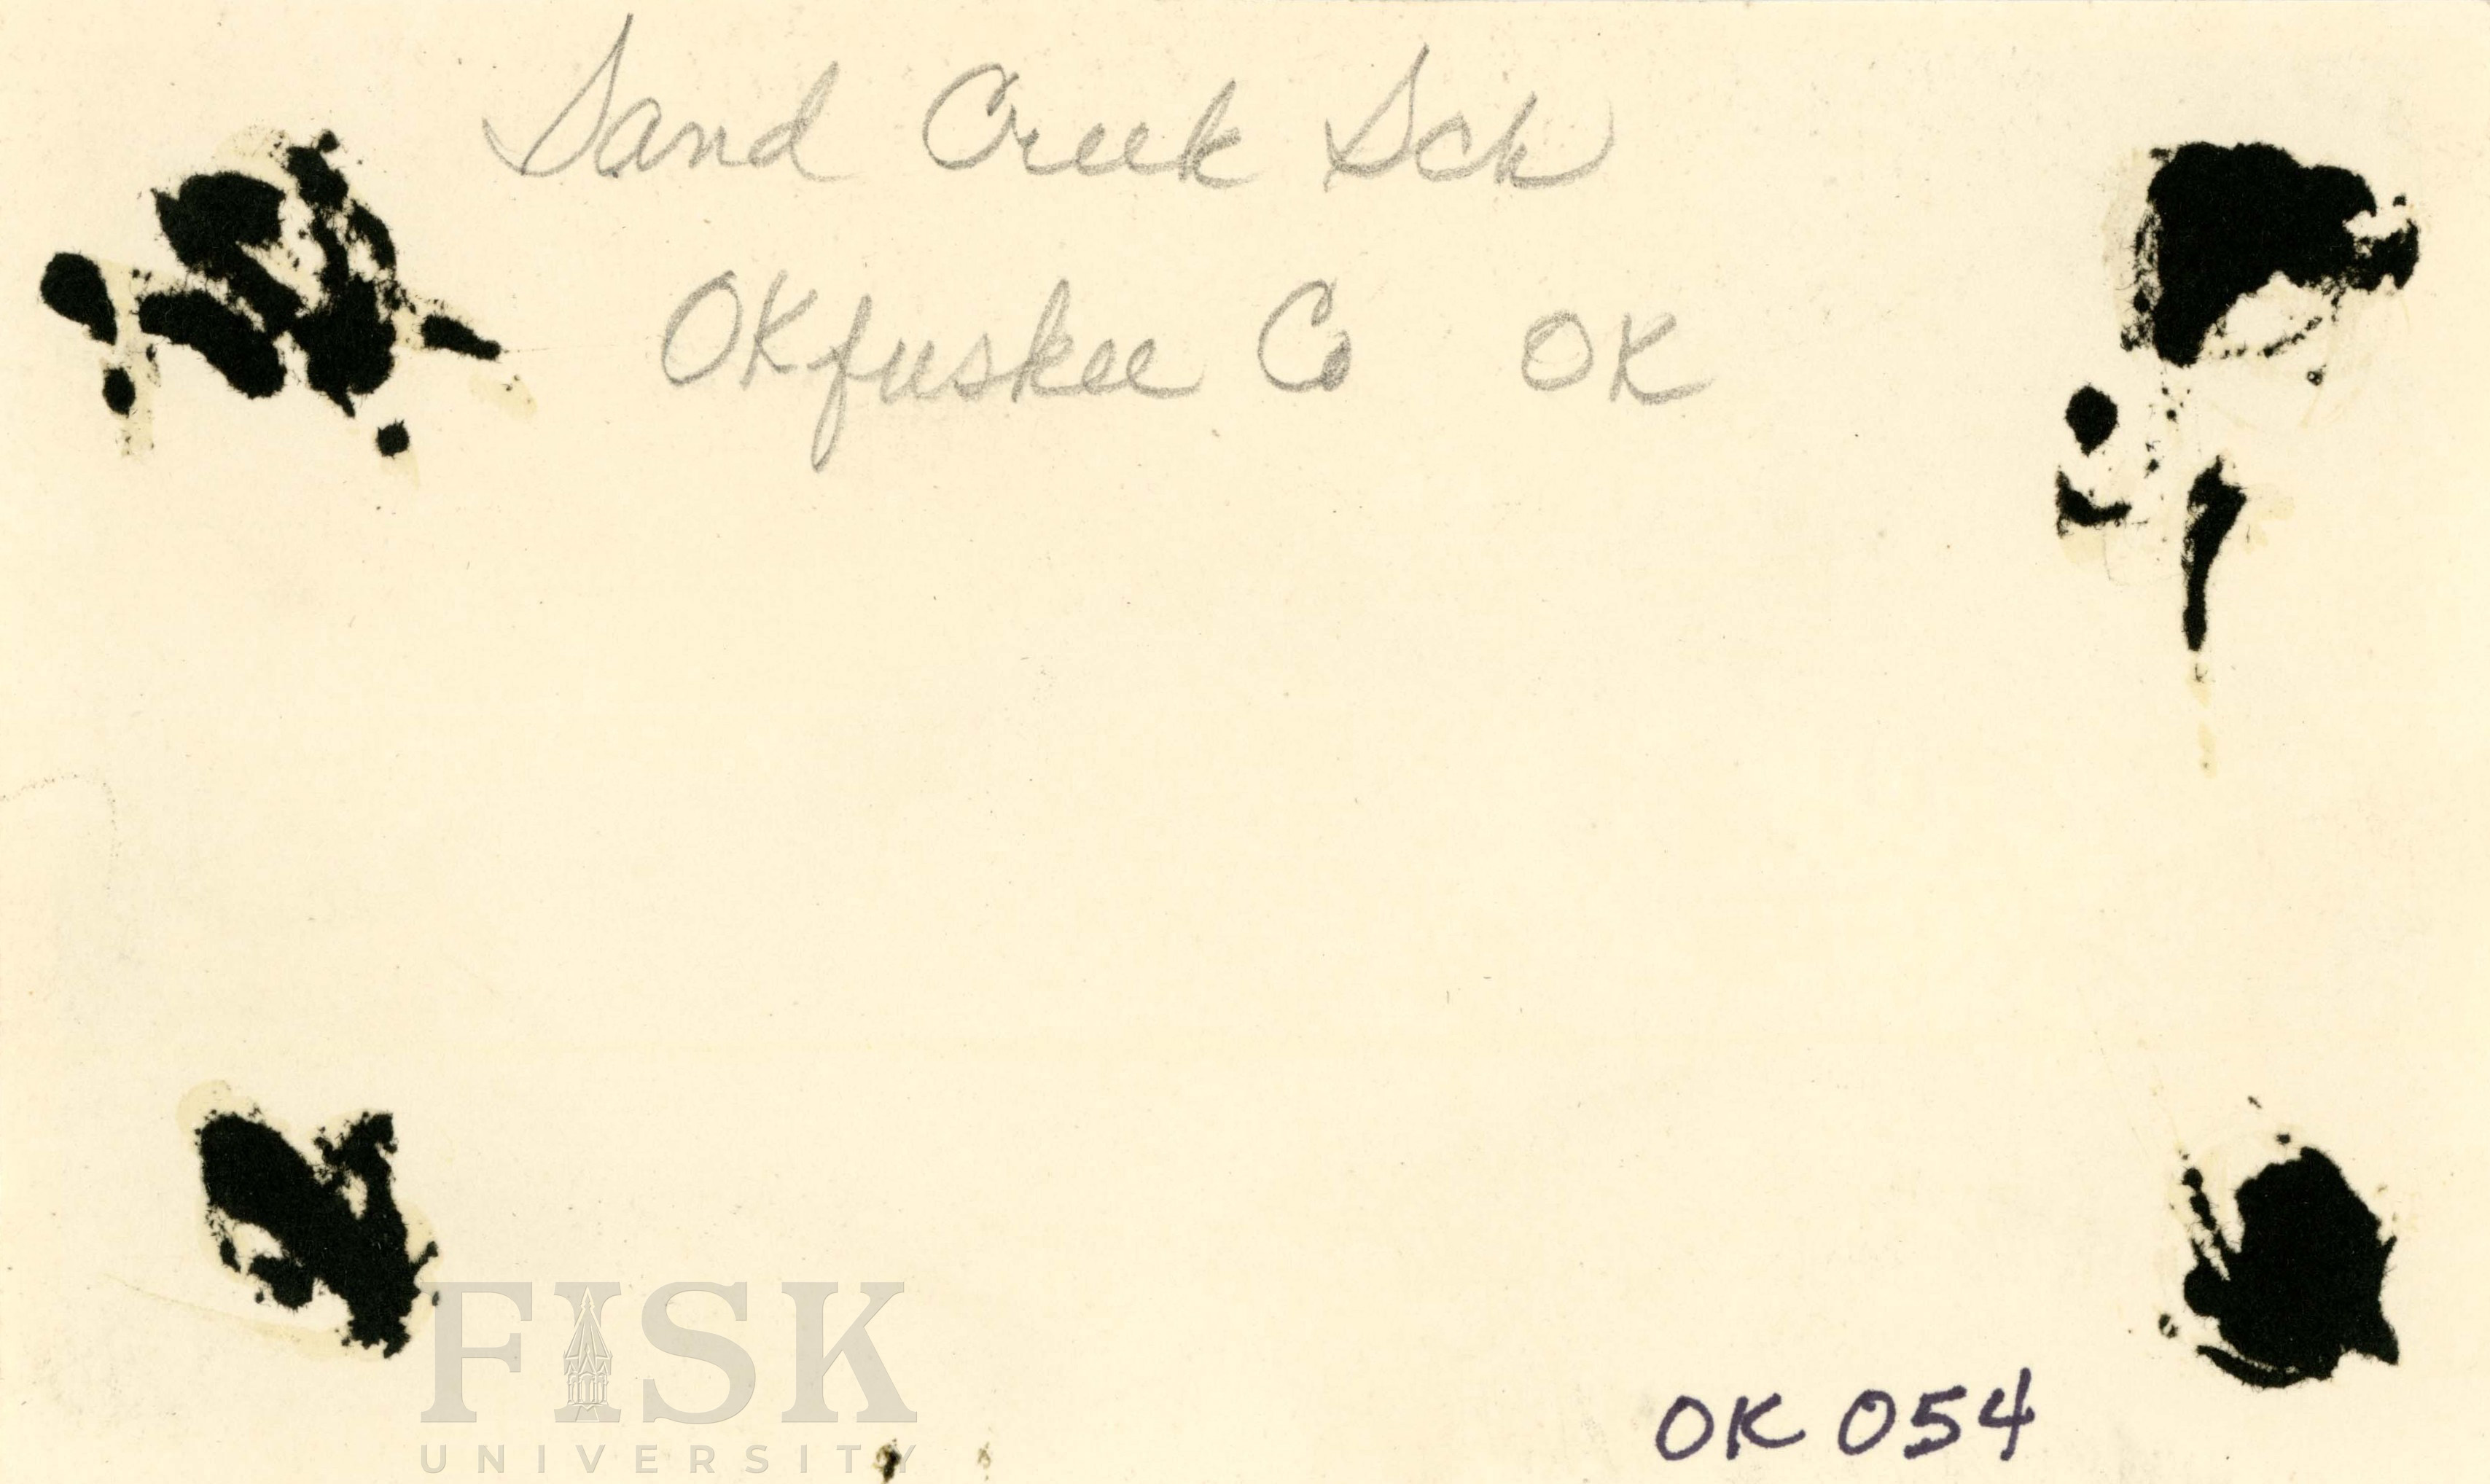 Sand Creek Sch
OKfuskee Co OK
FISK
UNIVERSITY
OK 054